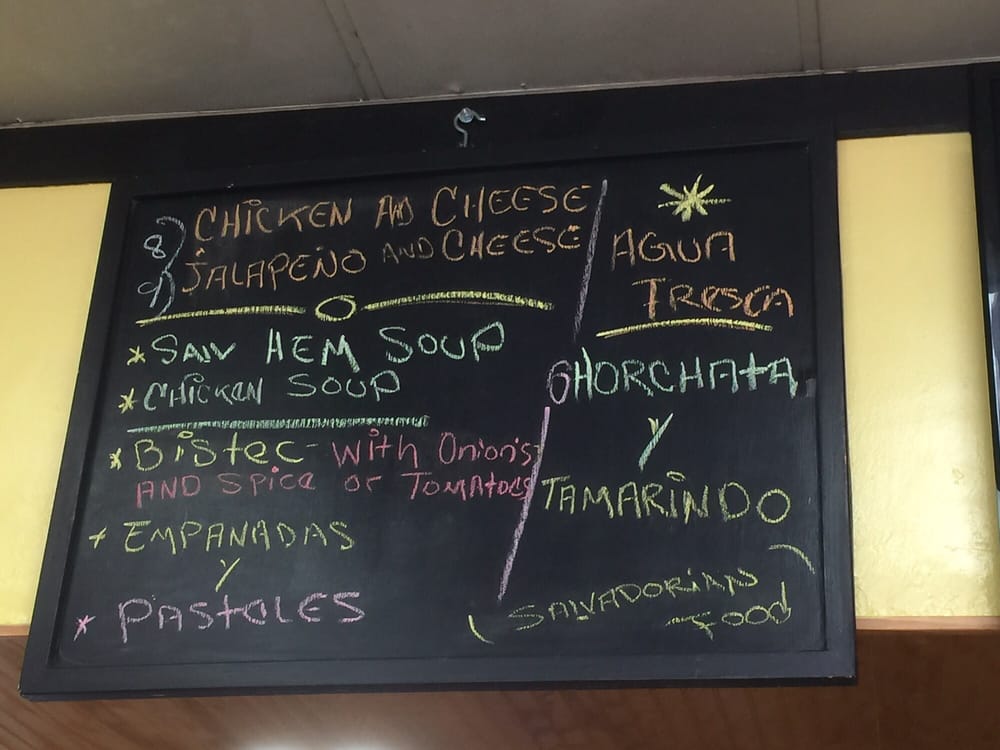 8) CHICKEN AND CHEESE
9) JALAPEÑO AND CHEESE
* SAIV HEM SOUP
* CHICKEN SOUP
* BisteC - With Onions
AND Spice or TOMATOES
+ EMPANADAS
Y
* PASteLES
AGUA
FRESCA
HORCHAtA
Y
TAMARiNDO
SALVADORiAN
FOOD